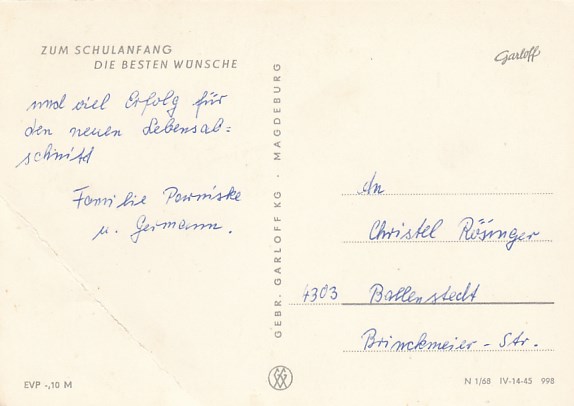 ZUM SCHULANFANG
DIE BESTEN WÜNSCHE
und viel Erfolg für
den neuen Lebensab=
schnitt
Familie Powniske
u. Germann.
GEBR. GARLOFF KG · MAGDEBURG
Garloff
An
Christel Rösinger
4303 Ballenstedt
Brinckmeier-Str.
EVP -,10 M
N 1/68 IV-14-45 998